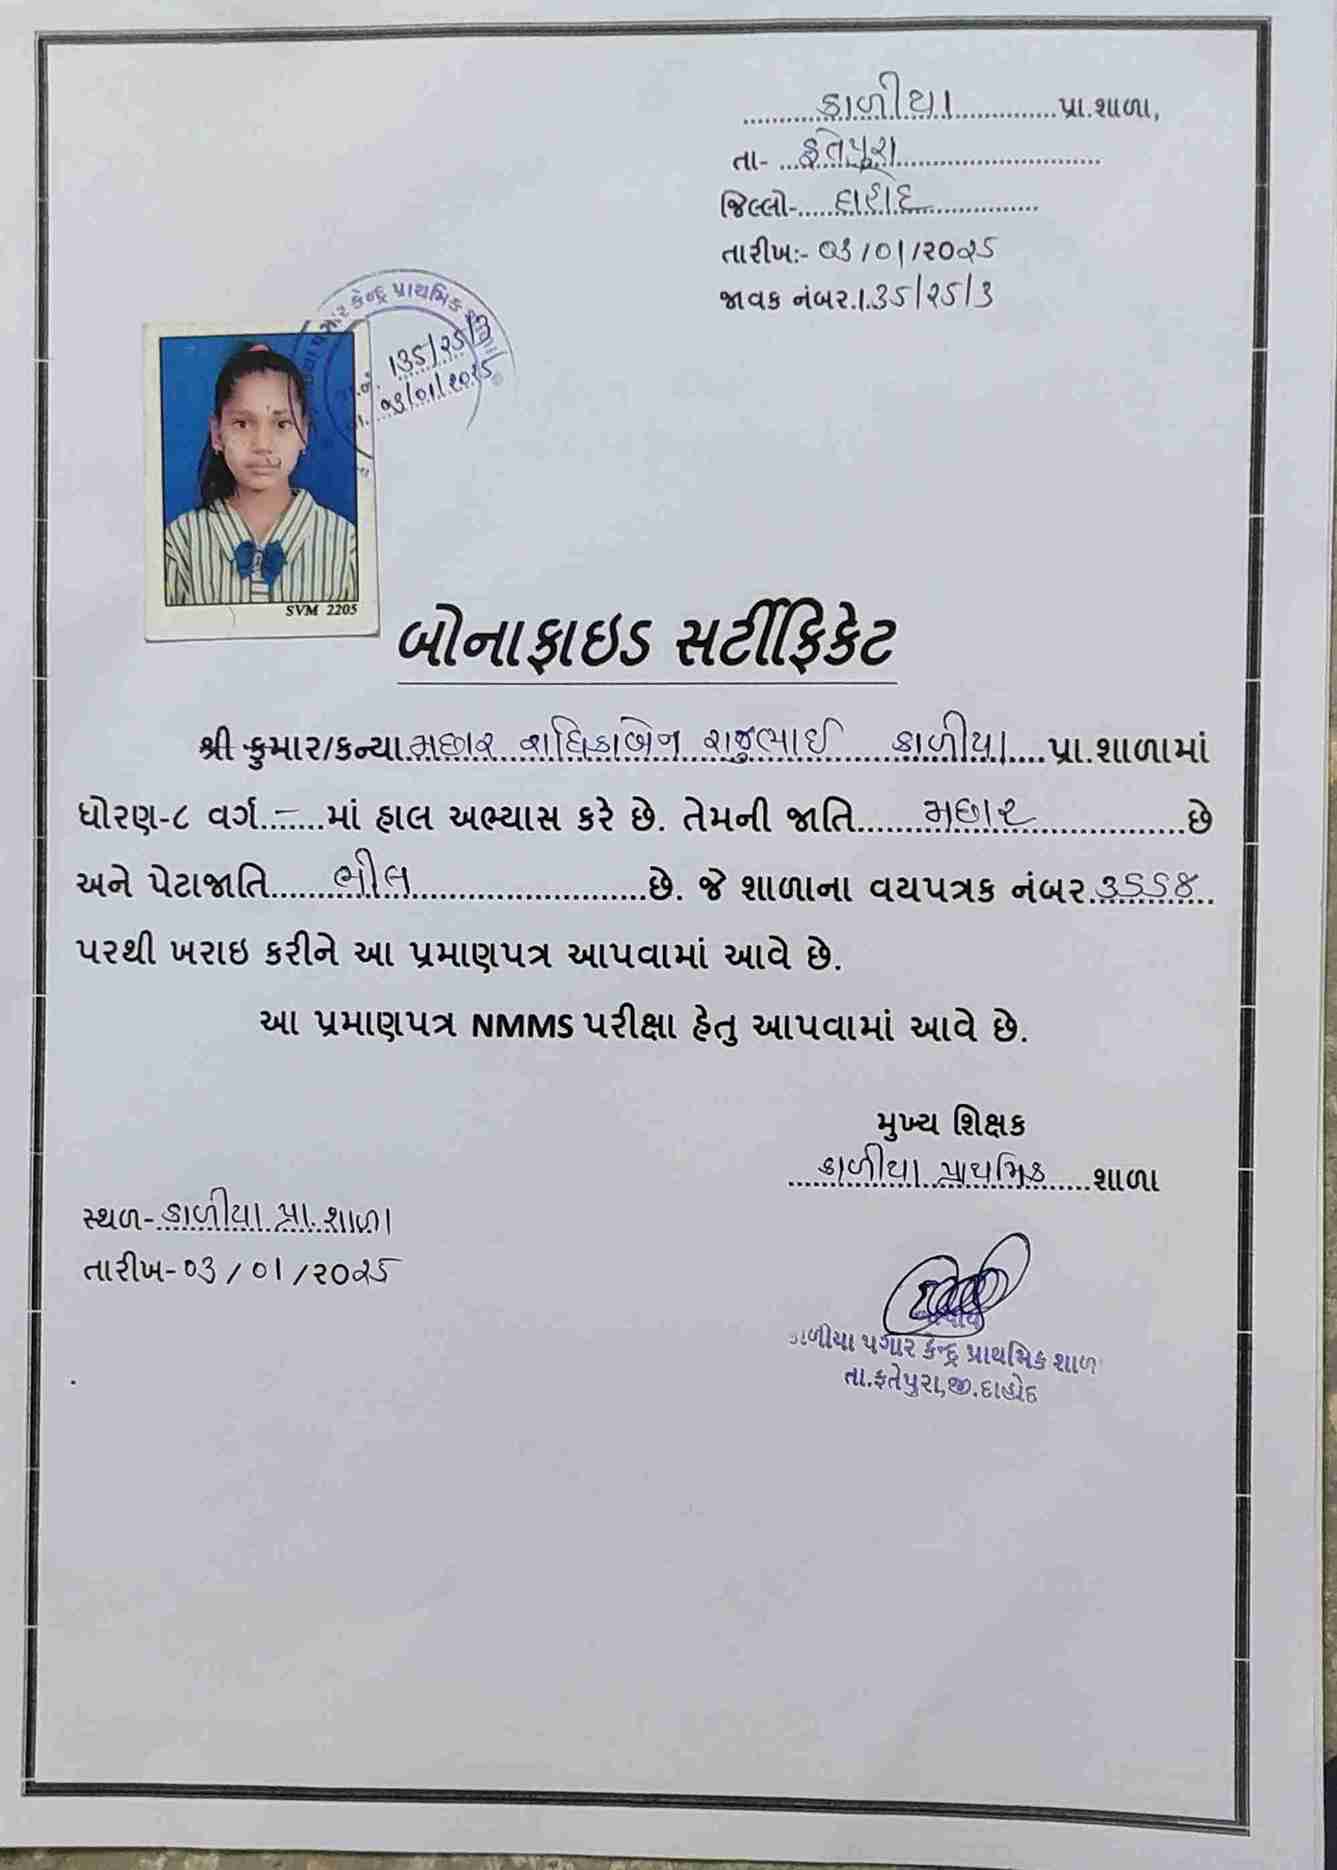 કાળીયા પ્રા.શાળા,
તા- ફતેપુરા
જિલ્લો- દાહોદ
તારીખઃ- ૦૩/૦૧/૨૦૨૫
જાવક નંબર.૧૩૬/૨૫/૩
કેન્દ્ર પ્રાથમિક
૧૩૬/૨૫/૩
૦૩/૦૧/૨૦૨૫
SVM 2205
બોનાફાઇડ સર્ટીફિકેટ
શ્રી કુમાર/કન્યા મછાર રાધિકાબેન રાજુભાઈ કાળીયા પ્રા.શાળામાં
ધોરણ-૮ વર્ગ.-માં હાલ અભ્યાસ કરે છે. તેમની જાતિ મછાર છે
અને પેટાજાતિ ભીલ છે. જે શાળાના વયપત્રક નંબર ૩૬૬૪
પરથી ખરાઇ કરીને આ પ્રમાણપત્ર આપવામાં આવે છે.
આ પ્રમાણપત્ર NMMS પરીક્ષા હેતુ આપવામાં આવે છે.
મુખ્ય શિક્ષક
કાળીયા પ્રાથમિક શાળા
સ્થળ- કાળીયા પ્રા. શાળા
તારીખ- ૦૩/૦૧/૨૦૨૫
કાળીયા પગાર કેન્દ્ર પ્રાથમિક શાળ
તા.ફતેપુરા,જી.દાહોદ